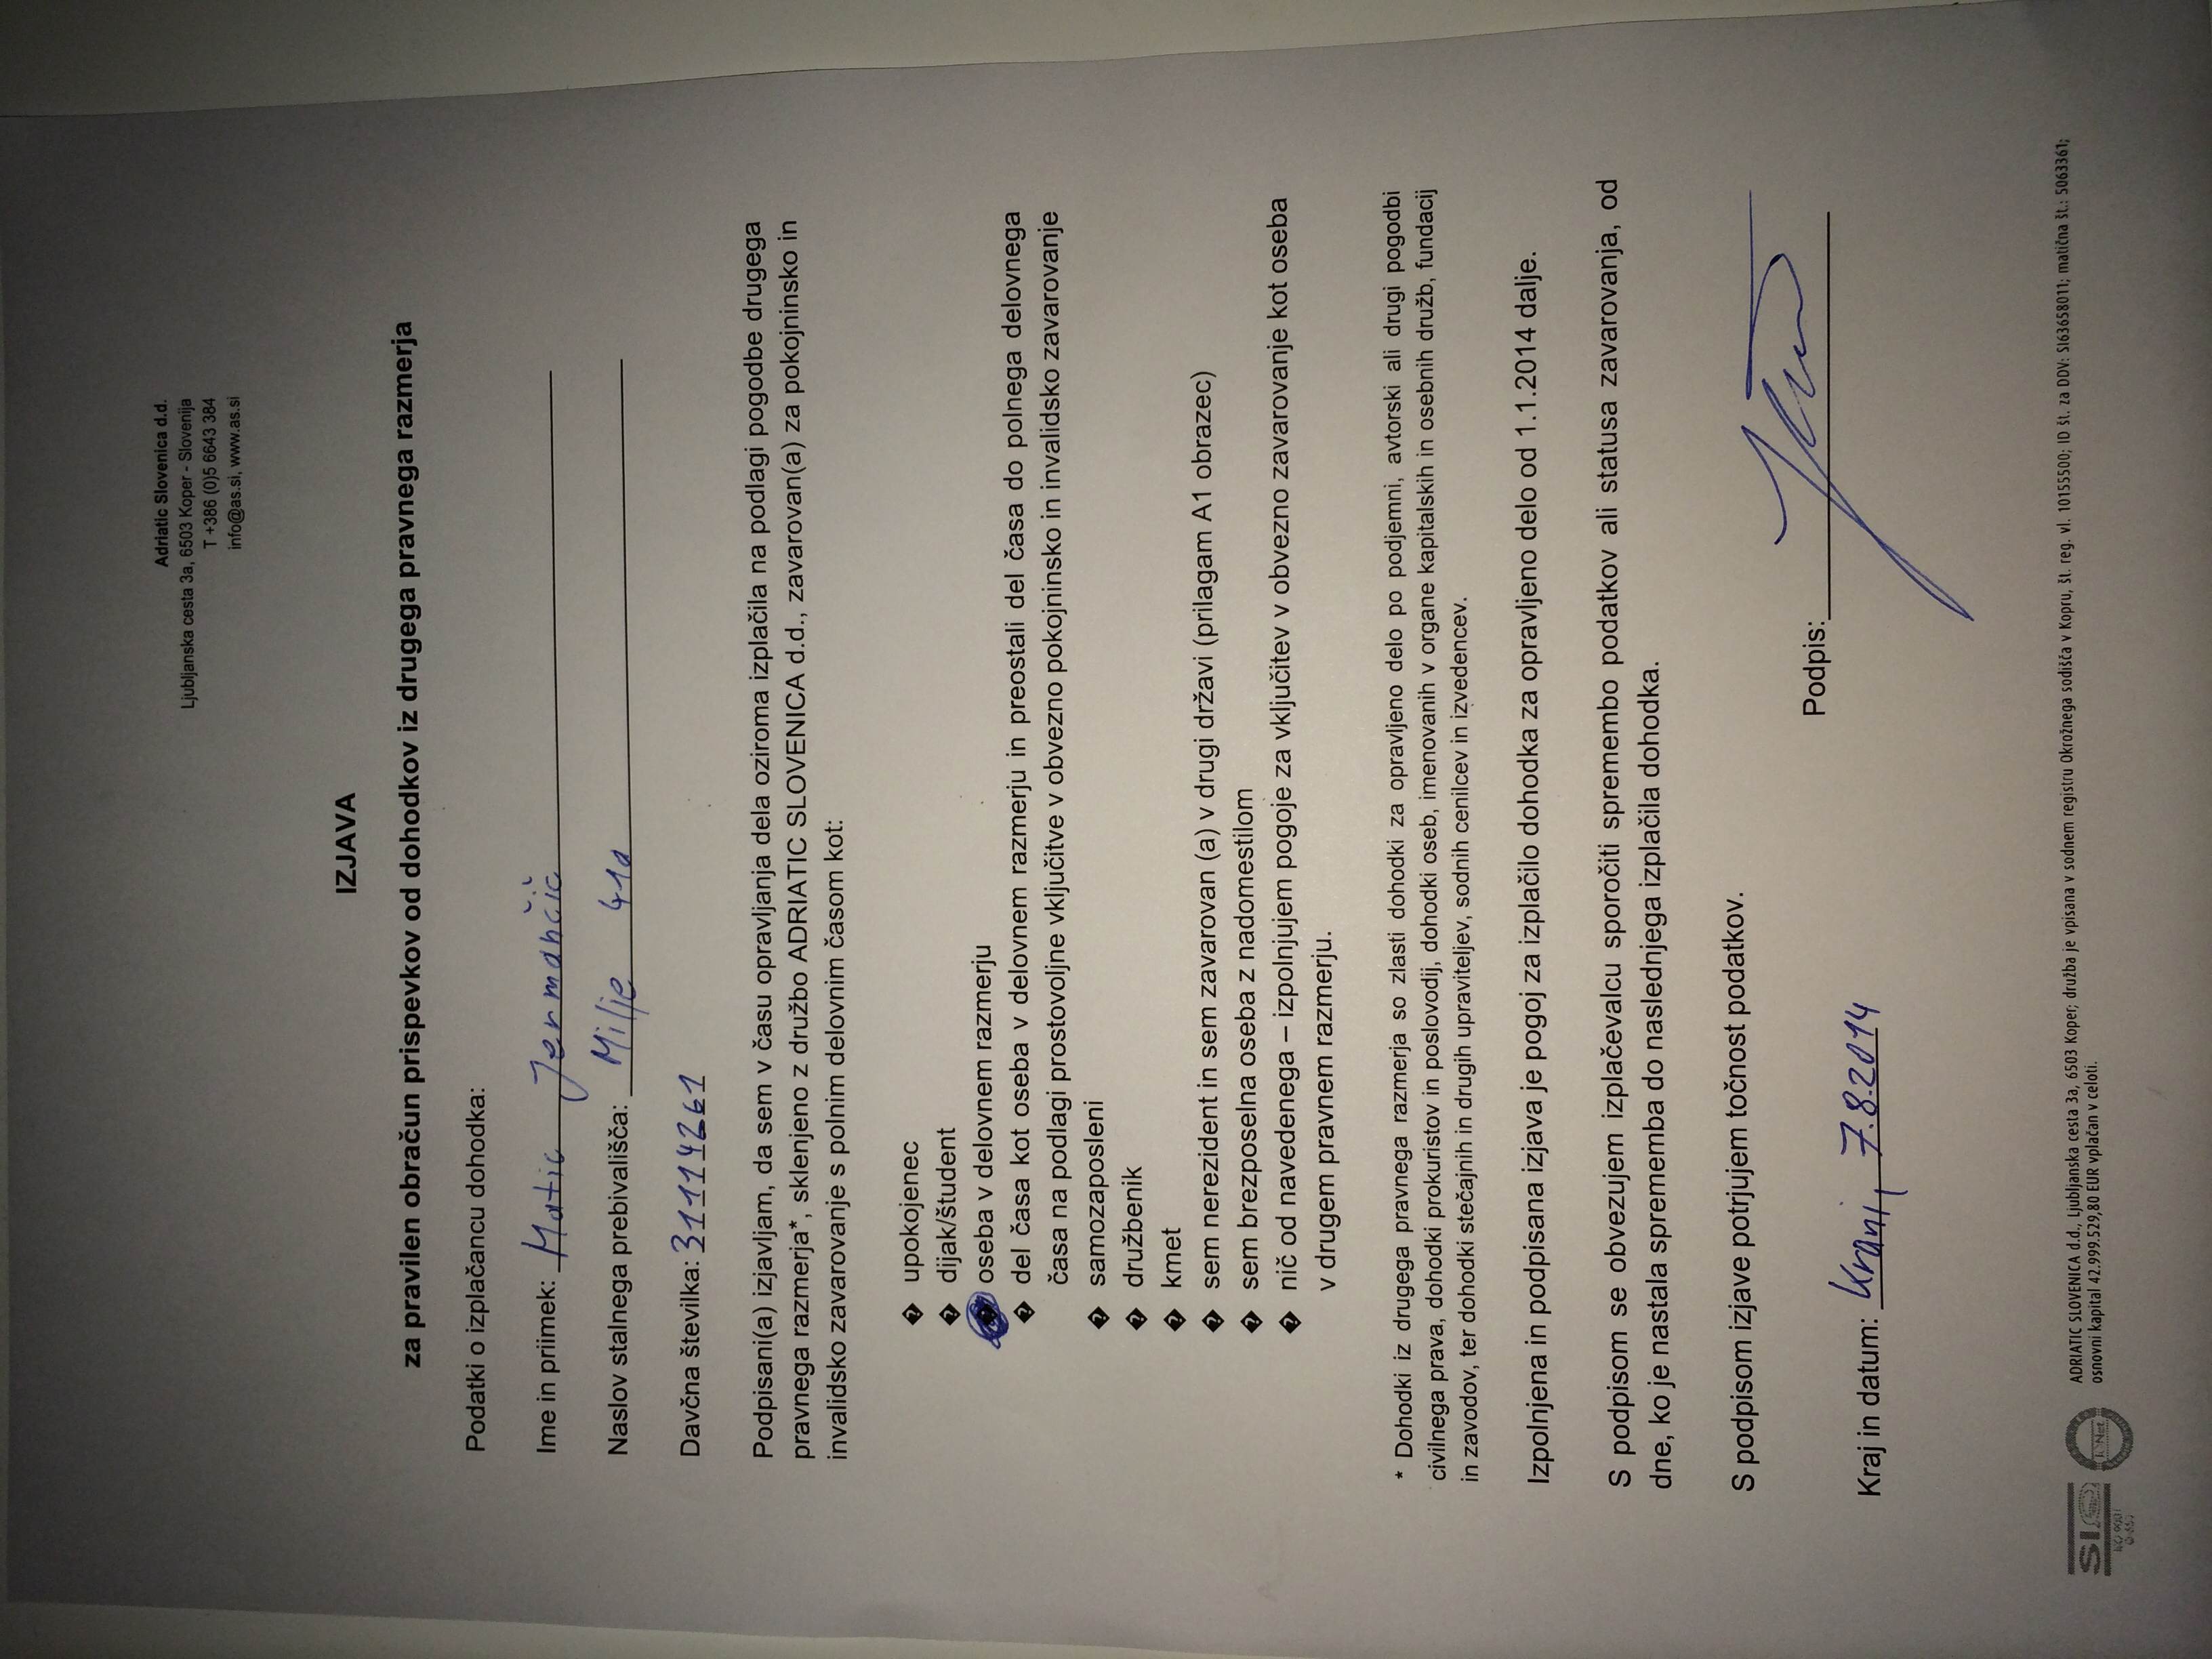 Adriatic Slovenica d.d.
Ljubljanska cesta 3a, 6503 Koper - Slovenija
T +386 (0)5 6643 384
info@as.si, www.as.si
IZJAVA
za pravilen obračun prispevkov od dohodkov iz drugega pravnega razmerja
Podatki o izplačancu dohodka:
Ime in priimek: Matic Jermančič
Naslov stalnega prebivališča: Milje 41a
Davčna številka: 31114261
Podpisani(a) izjavljam, da sem v času opravljanja dela oziroma izplačila na podlagi pogodbe drugega
pravnega razmerja*, sklenjeno z družbo ADRIATIC SLOVENICA d.d., zavarovan(a) za pokojninsko in
invalidsko zavarovanje s polnim delovnim časom kot:
� upokojenec
� dijak/študent
oseba v delovnem razmerju
� del časa kot oseba v delovnem razmerju in preostali del časa do polnega delovnega
časa na podlagi prostovoljne vključitve v obvezno pokojninsko in invalidsko zavarovanje
� samozaposleni
� družbenik
� kmet
� sem nerezident in sem zavarovan (a) v drugi državi (prilagam A1 obrazec)
� sem brezposelna oseba z nadomestilom
� nič od navedenega – izpolnjujem pogoje za vključitev v obvezno zavarovanje kot oseba
v drugem pravnem razmerju.
* Dohodki iz drugega pravnega razmerja so zlasti dohodki za opravljeno delo po podjemni, avtorski ali drugi pogodbi
civilnega prava, dohodki prokuristov in poslovodij, dohodki oseb, imenovanih v organe kapitalskih in osebnih družb, fundacij
in zavodov, ter dohodki stečajnih in drugih upraviteljev, sodnih cenilcev in izvedencev.
Izpolnjena in podpisana izjava je pogoj za izplačilo dohodka za opravljeno delo od 1.1.2014 dalje.
S podpisom se obvezujem izplačevalcu sporočiti spremembo podatkov ali statusa zavarovanja, od
dne, ko je nastala sprememba do naslednjega izplačila dohodka.
S podpisom izjave potrjujem točnost podatkov.
Podpis:
Kraj in datum: Kranj, 7.8.2014
ADRIATIC SLOVENICA d.d., Ljubljanska cesta 3a, 6503 Koper; družba je vpisana v sodnem registru Okrožnega sodišča v Kopru, št. reg. vl. 10155500; ID št. za DDV: SI63658011; matična št.: 5063361;
osnovni kapital 42.999.529,80 EUR vplačan v celoti.
SIQ
IQNet
ISO 9001